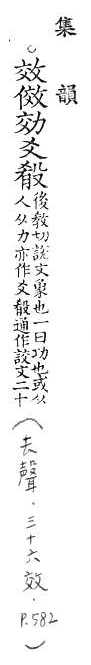 集韻
效傚効爻㲋後教切説文象也一曰功也或从
人从力亦作爻㲋通作詨文二十
（去聲．三十六效．P.582）